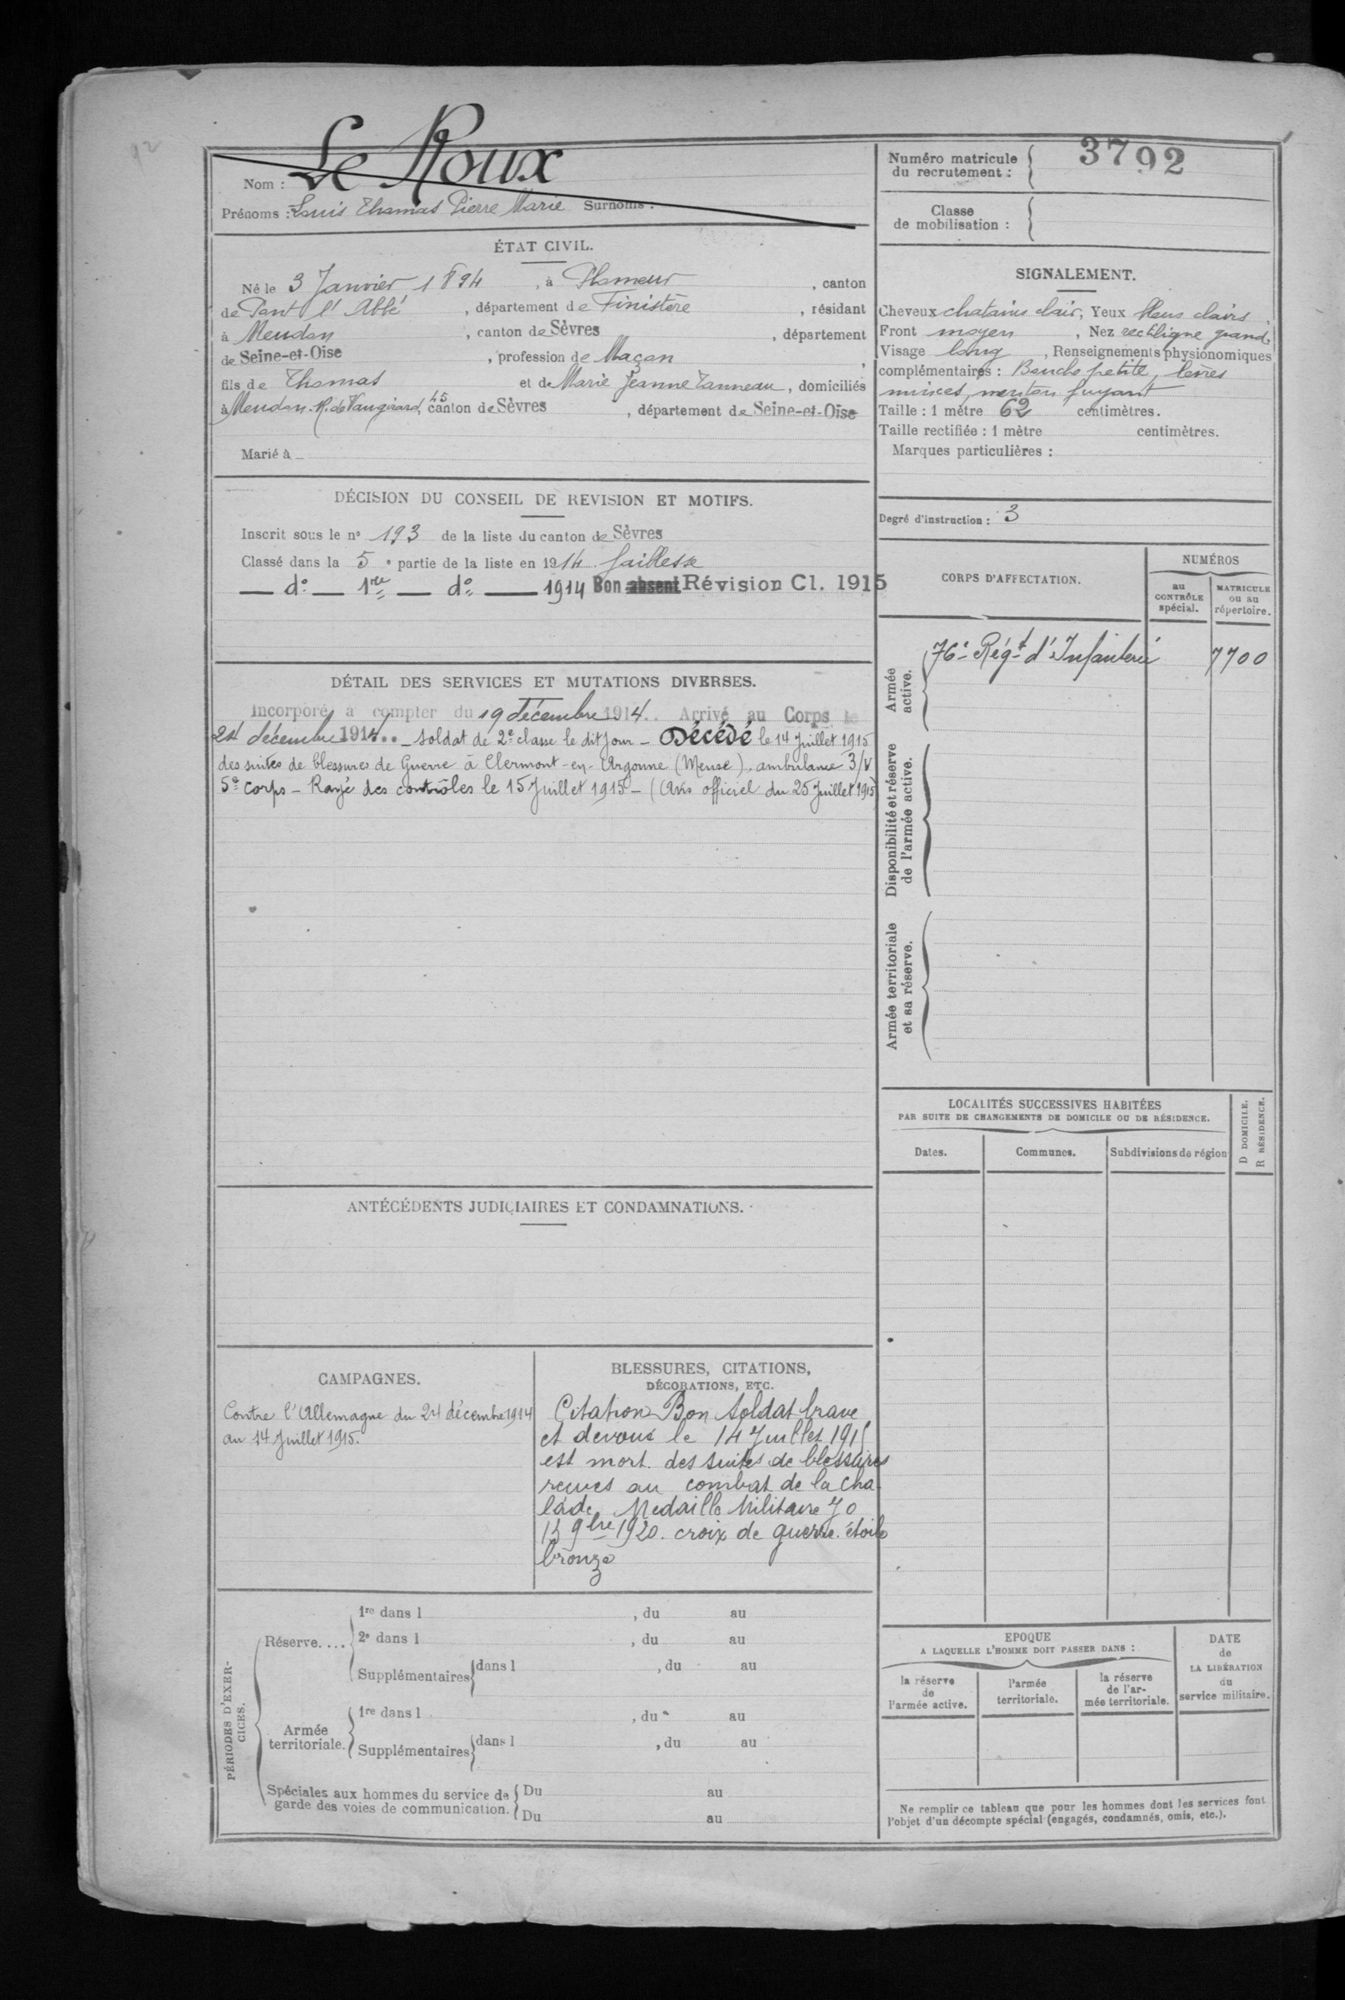 Le Roux
Nom :
Prénoms : Louis Thomas Pierre Marie Surnoms :
ÉTAT CIVIL.
Né le 3 Janvier 1894, à Plomeur, canton
de Pont l'Abbé, département de Finistère, résidant
à Meudon, canton de Sèvres, département
de Seine-et-Oise, profession de Maçon,
fils de Thomas et de Marie Jeanne Tanneau, domiciliés
à Meudon. R. de Vaugirard, 45 canton de Sèvres, département de Seine-et-Oise
Marié à
DÉCISION DU CONSEIL DE REVISION ET MOTIFS.
Inscrit sous le n° 193 de la liste du canton de Sèvres
Classé dans la 5e partie de la liste en 1914 faiblesse
— d° — 1re — d° — 1914 Bon absent Révision Cl. 1915
DÉTAIL DES SERVICES ET MUTATIONS DIVERSES.
Incorporé à compter du 19 décembre 1914. Arrivé au Corps le
24 décembre 1914. — soldat de 2e classe le dit jour — Décédé le 14 Juillet 1915
des suites de blessures de Guerre à Clermont-en-Argonne (Meuse), ambulance 3/V
5e Corps — Rayé des contrôles le 15 Juillet 1915 — (Avis officiel du 25 Juillet 1915)
ANTÉCÉDENTS JUDICIAIRES ET CONDAMNATIONS.
CAMPAGNES.
Contre l'Allemagne du 24 décembre 1914
au 14 Juillet 1915.
BLESSURES, CITATIONS,
DÉCORATIONS, ETC.
Citation Bon soldat brave
et dévoué le 14 Juillet 1915
est mort des suites de blessures
reçues au combat de la Cha
lade Medaille Militaire J O
15 9bre 1920. croix de guerre. étoile
bronze
PÉRIODES D'EXER-
CICES.
Réserve....
1re dans l , du au
2e dans l , du au
Supplémentaires dans l , du au
Armée
territoriale.
1re dans l , du au
Supplémentaires dans l , du au
Spéciales aux hommes du service de
garde des voies de communication.
Du au
Du au
Numéro matricule
du recrutement :
3792
Classe
de mobilisation :
SIGNALEMENT.
Cheveux chatains clair, Yeux bleus clairs
Front moyen, Nez rectiligne grand,
Visage long, Renseignements physionomiques
complémentaires : Bouche petite, lèvres
minces, menton fuyant
Taille : 1 mètre 62 centimètres.
Taille rectifiée : 1 mètre centimètres.
Marques particulières :
Degré d'instruction : 3
CORPS D'AFFECTATION.
NUMÉROS
au
CONTRÔLE
spécial.
MATRICULE
ou au
répertoire.
Armée
active.
76e Régt d'Infanterie 7700
Disponibilité et réserve
de l'armée active.
Armée territoriale
et sa réserve.
LOCALITÉS SUCCESSIVES HABITÉES
PAR SUITE DE CHANGEMENTS DE DOMICILE OU DE RÉSIDENCE.
D DOMICILE.
R RÉSIDENCE.
Dates.
Communes.
Subdivisions de région
EPOQUE
A LAQUELLE L'HOMME DOIT PASSER DANS :
la réserve
de
l'armée active.
l'armée
territoriale.
la réserve
de l'ar-
mée territoriale.
DATE
de
LA LIBÉRATION
du
service militaire.
Ne remplir ce tableau que pour les hommes dont les services font
l'objet d'un décompte spécial (engagés, condamnés, omis, etc.).